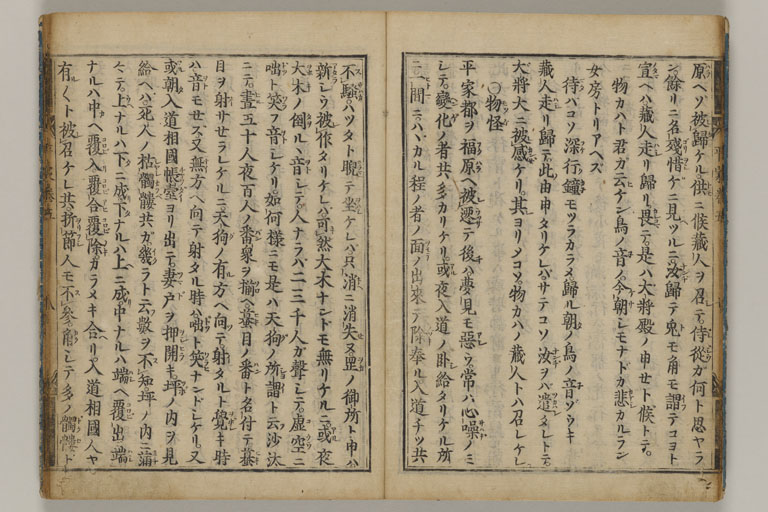 原ヘソ被歸ケル供ニ候藏人ヲ召テ侍從カ何ト思ヤラ
ン餘リニ名殘惜ケニ見ツルニ汝歸テ兎モ角モ謂テコヨト
宣ヘハ藏人走リ歸リ畏テ是ハ大將殿ノ申セト候トテ
物カハト君カ云ケン鳥ノ音ノ今朝シモナドカ悲カルラン
女房トリアヘス
待ハコソ深行鐘モツラカラメ歸ル朝ノ鳥ノ音ゾウキ
藏人走リ歸テ此由申タリケレバサテコソ汝ヲバ遣タレトテ
大將大ニ被感ケリ其ヨリメコソ物カハノ藏人トハ召レケレ
〇物怪
平家都ヲ福原ヘ被遷テ後ハ夢見モ惡ウ常ハ心噪ノミ
シテ變化ノ者共多カリケリ或夜入道ノ臥給タリケル所
ニ一間ニハヾカル程ノ者ノ面ノ出來テ除奉ル入道チツ共
不騷ハツタト睨テ坐ケレハ只消ニ消失ヌ岡ノ御所ト申ハ
新シウ被作タリケレハ可然大木ナンドモ無リケルニ或夜
大木ノ倒ルヽ音シテ人ナラバ二三千人カ聲シテ虚空ニ
咄ト笑フ音シケリ如何樣ニモ是ハ天狗ノ所謂ト云沙汰
ニテ晝五十人夜百人ノ番衆ヲ揃ヘ蟇目ノ番ト名付テ蟇
目ヲ射サセラレケルニ天狗ノ有方ヘ向テ射タルト覺キ時
ハ音モセス又無方ヘ向テ射タル時ハ咄ト笑ナンドシケリ又
或朝入道相國帳臺ヨリ出テ妻戸ヲ押開キ坪ノ内ヲ見
給ヘハ死人ノ枯髑髏共カ幾ラト云數ヲ不知坪ノ内ニ滿
〻テ上ナルハ下ニ成下ナルハ上ニ成中ナルハ端ヘ覆出端
ナルハ中ヘ覆入覆合覆除カラメキ合リ入道相國人ヤ
有〱ト被召ケレ共折節人モ不參角シテ多ノ髑髏ト